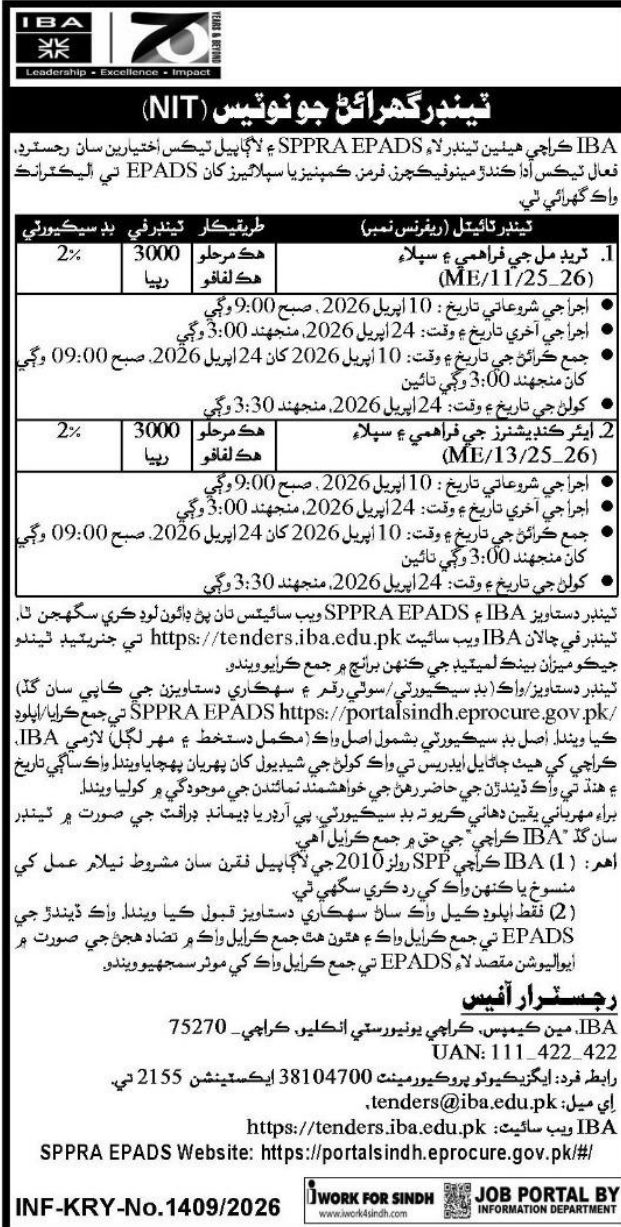 IBA
70
YEARS & BEYOND
Leadership • Excellence • Impact
ٽينڊر گهرائڻ جو نوٽيس (NIT)
IBA ڪراچي هيٺين ٽينڊر لاءِ SPPRA EPADS ۽ لاڳاپيل ٽيڪس اختيارين سان رجسٽرڊ،
فعال ٽيڪس ادا ڪندڙ مينوفيڪچرز، فرمز، ڪمپنيز يا سپلائيرز کان EPADS تي اليڪٽرانڪ
واڪ گهرائي ٿي.
ٽينڊر ٽائيٽل (ريفرنس نمبر) طريقيڪار ٽينڊر في بڊ سيڪيورٽي
1. ٽريڊ مل جي فراهمي ۽ سپلاءِ هڪ مرحلو 3000 2%
(ME/11/25_26) هڪ لفافو رپيا
● اجرا جي شروعاتي تاريخ: 10 اپريل 2026، صبح 9:00 وڳي
● اجرا جي آخري تاريخ ۽ وقت: 24 اپريل 2026، منجهند 3:00 وڳي
● جمع ڪرائڻ جي تاريخ ۽ وقت: 10 اپريل 2026 کان 24 اپريل 2026، صبح 09:00 وڳي
کان منجهند 3:00 وڳي تائين
● کولڻ جي تاريخ ۽ وقت: 24 اپريل 2026، منجهند 3:30 وڳي
2. ايئر ڪنڊيشنرز جي فراهمي ۽ سپلاءِ هڪ مرحلو 3000 2%
(ME/13/25_26) هڪ لفافو رپيا
● اجرا جي شروعاتي تاريخ: 10 اپريل 2026، صبح 9:00 وڳي
● اجرا جي آخري تاريخ ۽ وقت: 24 اپريل 2026، منجهند 3:00 وڳي
● جمع ڪرائڻ جي تاريخ ۽ وقت: 10 اپريل 2026 کان 24 اپريل 2026، صبح 09:00 وڳي
کان منجهند 3:00 وڳي تائين
● کولڻ جي تاريخ ۽ وقت: 24 اپريل 2026، منجهند 3:30 وڳي
ٽينڊر دستاويز IBA ۽ SPPRA EPADS ويب سائيٽس تان پڻ ڊائون لوڊ ڪري سگهجن ٿا.
ٽينڊر في چالان IBA ويب سائيٽ https://tenders.iba.edu.pk تي جنريٽيڊ ٿيندو
جيڪو ميزان بينڪ لميٽيڊ جي ڪنهن برانچ ۾ جمع ڪرايو ويندو.
ٽينڊر دستاويز/واڪ (بڊ سيڪيورٽي/سوٽي رقم ۽ سهڪاري دستاويزن جي ڪاپي سان گڏ)
SPPRA EPADS https://portalsindh.eprocure.gov.pk/ تي جمع ڪرايا/اپلوڊ
ڪيا ويندا. اصل بڊ سيڪيورٽي بشمول اصل واڪ (مڪمل دستخط ۽ مهر لڳل) لازمي IBA،
ڪراچي کي هيٺ ڄاڻايل ايڊريس تي واڪ کولڻ جي شيڊيول کان پهريان پهچايا ويندا. واڪ ساڳي تاريخ
۽ هنڌ تي واڪ ڏيندڙن جي حاضر رهڻ جي خواهشمند نمائندن جي موجودگي ۾ کوليا ويندا.
براءِ مهرباني يقين دهاني ڪريو ته بڊ سيڪيورٽي، پي آرڊر يا ڊيمانڊ ڊرافٽ جي صورت ۾ ٽينڊر
سان گڏ "IBA ڪراچي" جي حق ۾ جمع ڪرايل آهي.
اهم: (1) IBA ڪراچي SPP رولز 2010 جي لاڳاپيل فقرن سان مشروط نيلام عمل کي
منسوخ يا ڪنهن واڪ کي رد ڪري سگهي ٿي.
(2) فقط اپلوڊ ڪيل واڪ ساڻ سهڪاري دستاويز قبول ڪيا ويندا. واڪ ڏيندڙ جي
EPADS تي جمع ڪرايل واڪ ۽ هٿون هٿ جمع ڪرايل واڪ ۾ تضاد هجڻ جي صورت ۾
ايواليوشن مقصد لاءِ EPADS تي جمع ڪرايل واڪ کي موثر سمجهيو ويندو.
رجسٽرار آفيس
IBA، مين ڪيمپس، ڪراچي يونيورسٽي انڪليو، ڪراچي_ 75270
UAN: 111_422_422
رابطه فرد: ايگزيڪيوٽو پروڪيورمينٽ 38104700 ايڪسٽينشن 2155 تي.
اِي ميل: tenders@iba.edu.pk،
IBA ويب سائيٽ: https://tenders.iba.edu.pk
SPPRA EPADS Website: https://portalsindh.eprocure.gov.pk/#/
INF-KRY-No.1409/2026
IWORK FOR SINDH
www.iwork4sindh.com
JOB PORTAL BY
INFORMATION DEPARTMENT